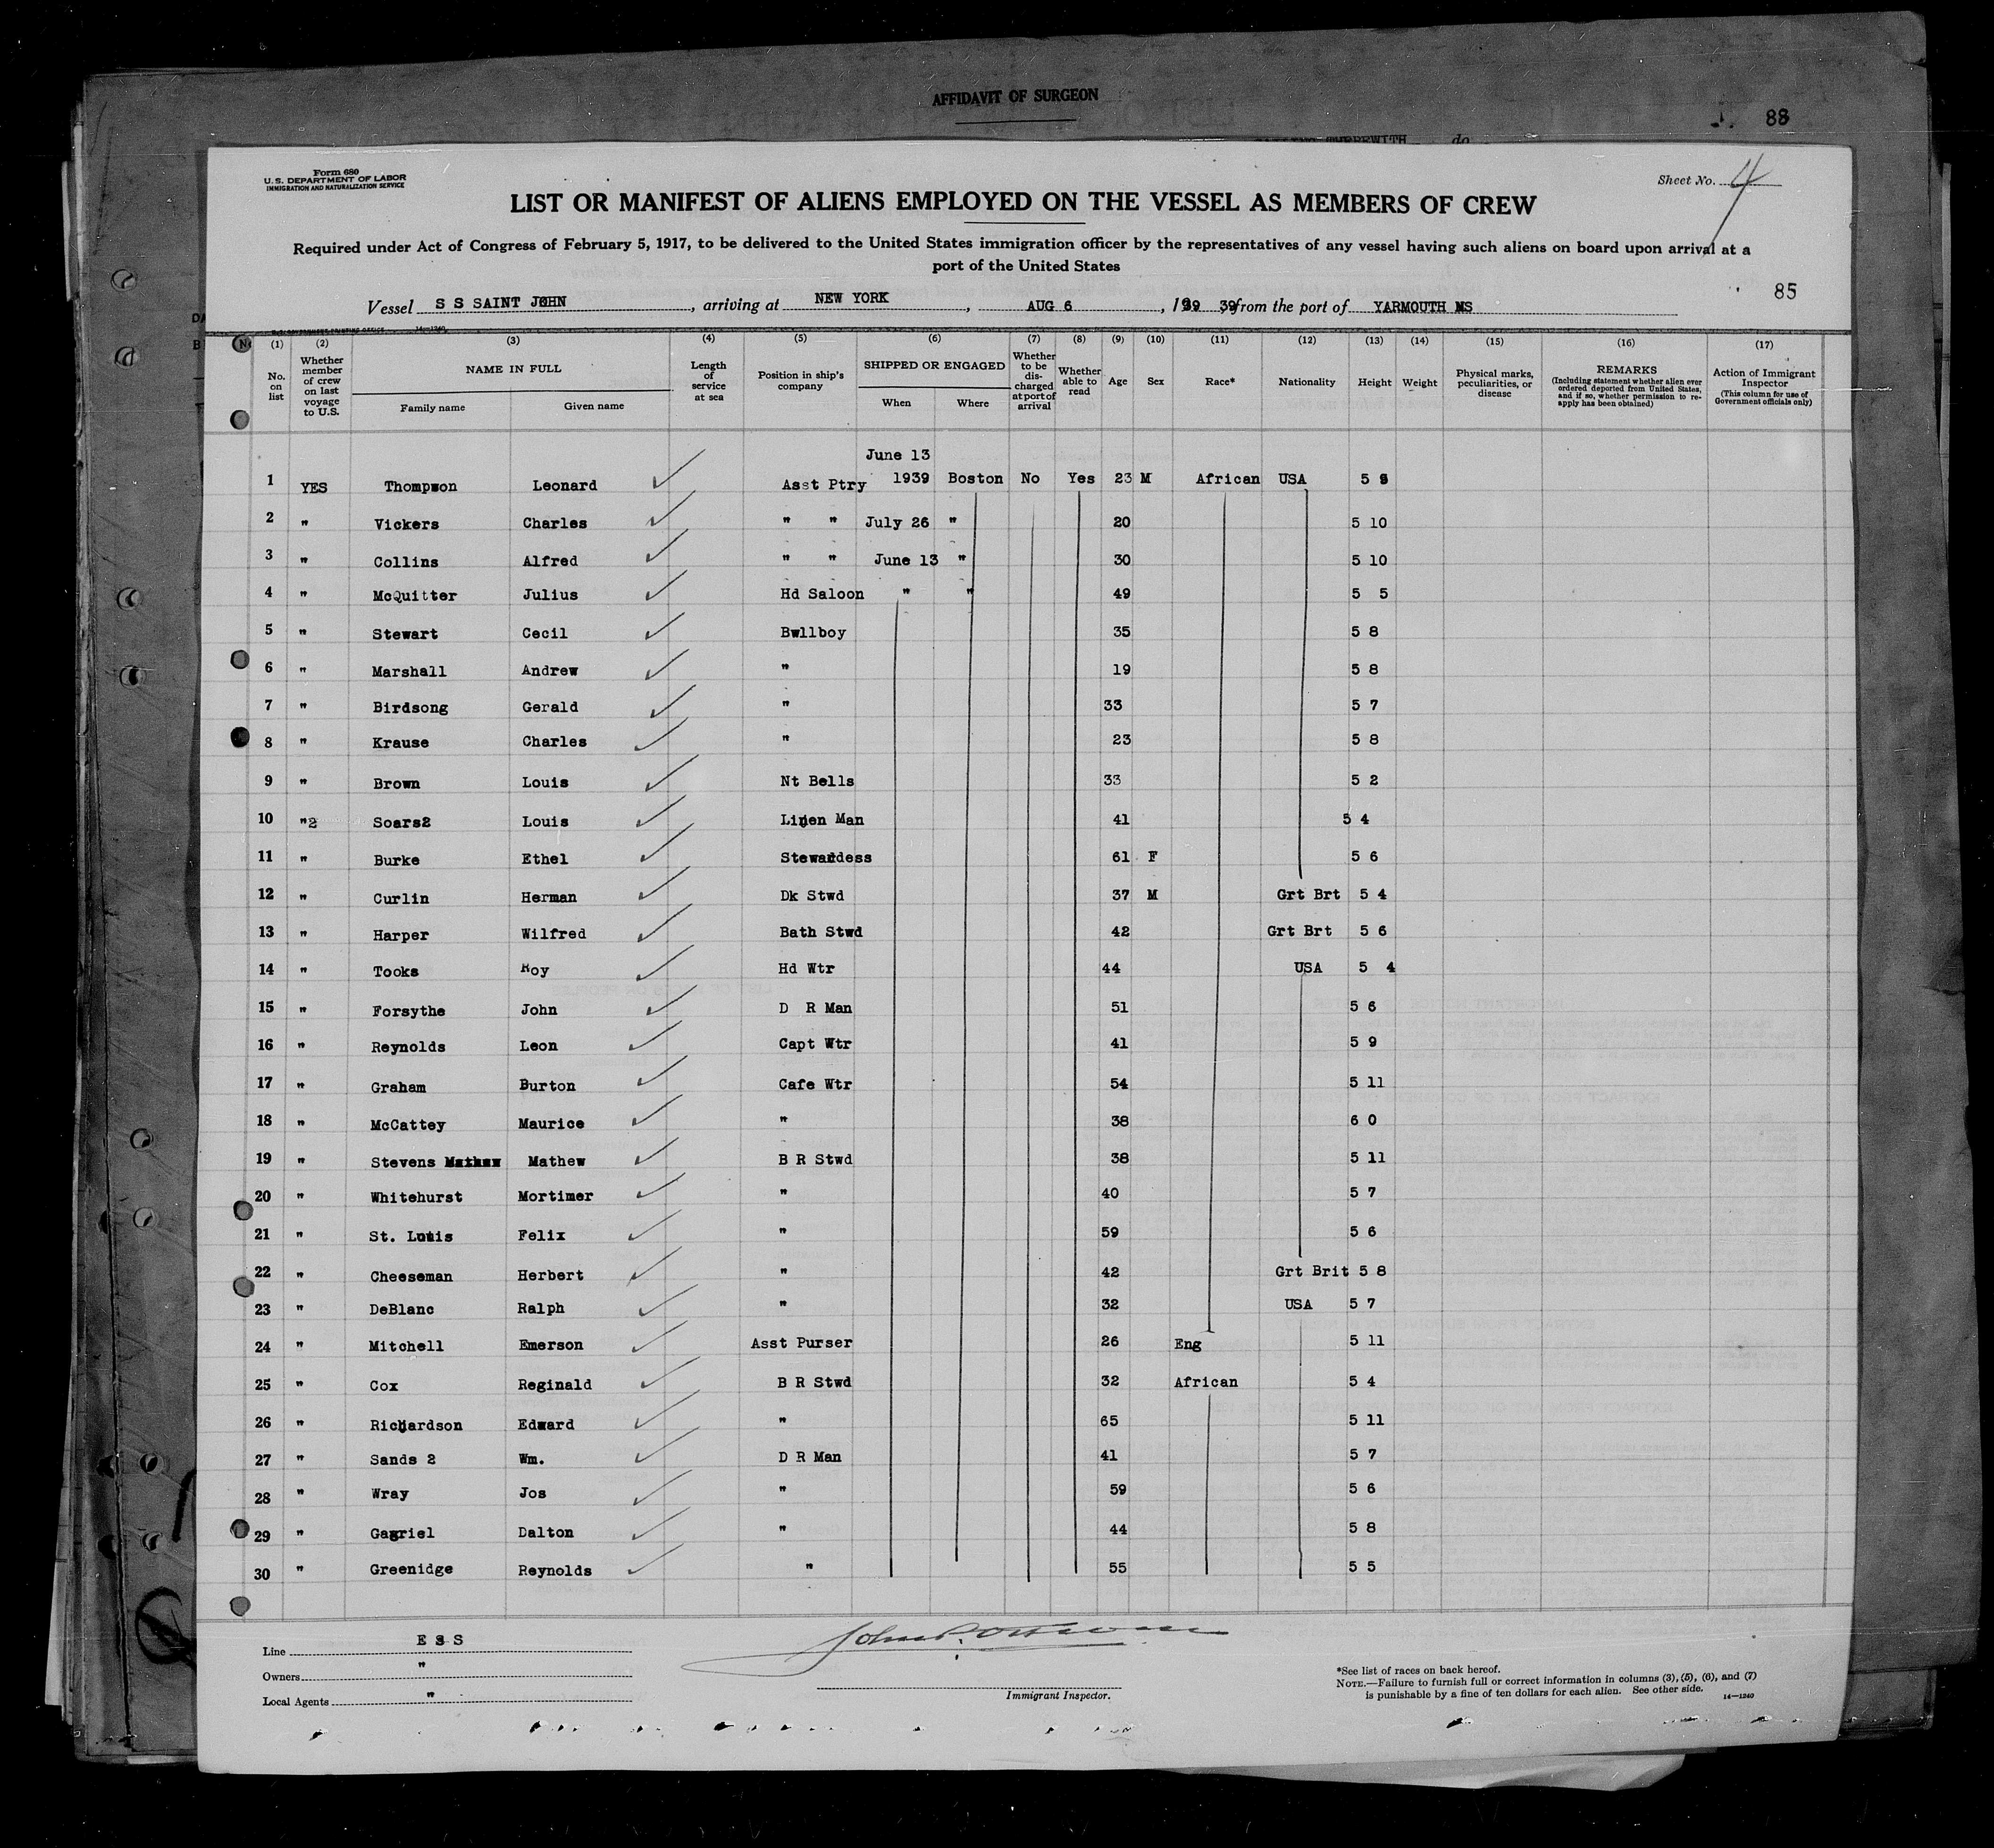 AFFIDAVIT OF SURGEON
88
THEREWITH do
Form 680
U.S. DEPARTMENT OF LABOR
IMMIGRATION AND NATURALIZATION SERVICE
Sheet No. 4
LIST OR MANIFEST OF ALIENS EMPLOYED ON THE VESSEL AS MEMBERS OF CREW
Required under Act of Congress of February 5, 1917, to be delivered to the United States immigration officer by the representatives of any vessel having such aliens on board upon arrival at a
port of the United States
85
Vessel S S SAINT JOHN, arriving at NEW YORK, AUG 6, 19 39, from the port of YARMOUTH NS
U.S. GOVERNMENT PRINTING OFFICE 14—1240
(1) (2) (3) (4) (5) (6) (7) (8) (9) (10) (11) (12) (13) (14) (15) (16) (17)
No. on list
Whether member of crew on last voyage to U.S.
NAME IN FULL
Family name Given name
Length of service at sea
Position in ship's company
SHIPPED OR ENGAGED
When Where
Whether to be discharged at port of arrival
Whether able to read
Age Sex Race* Nationality Height Weight
Physical marks, peculiarities, or disease
REMARKS
(Including statement whether alien ever ordered deported from United States, and if so, whether permission to reapply has been obtained)
Action of Immigrant Inspector
(This column for use of Government officials only)
June 13
1 YES Thompson Leonard Asst Ptry 1939 Boston No Yes 23 M African USA 5 9
2 " Vickers Charles " " July 26 " 20 5 10
3 " Collins Alfred " " June 13 " 30 5 10
4 " McQuitter Julius Hd Saloon " " 49 5 5
5 " Stewart Cecil Bwllboy 35 5 8
6 " Marshall Andrew " 19 5 8
7 " Birdsong Gerald " 33 5 7
8 " Krause Charles " 23 5 8
9 " Brown Louis Nt Bells 33 5 2
10 "2 Soars2 Louis Linen Man 41 5 4
11 " Burke Ethel Stewardess 61 F 5 6
12 " Curlin Herman Dk Stwd 37 M Grt Brt 5 4
13 " Harper Wilfred Bath Stwd 42 Grt Brt 5 6
14 " Tooks Roy Hd Wtr 44 USA 5 4
15 " Forsythe John D R Man 51 5 6
16 " Reynolds Leon Capt Wtr 41 5 9
17 " Graham Burton Cafe Wtr 54 5 11
18 " McCattey Maurice " 38 6 0
19 " Stevens Mathew B R Stwd 38 5 11
20 " Whitehurst Mortimer " 40 5 7
21 " St. Louis Felix " 59 5 6
22 " Cheeseman Herbert " 42 Grt Brit 5 8
23 " DeBlanc Ralph " 32 USA 5 7
24 " Mitchell Emerson Asst Purser 26 Eng 5 11
25 " Cox Reginald B R Stwd 32 African 5 4
26 " Richardson Edward " 65 5 11
27 " Sands 2 Wm. D R Man 41 5 7
28 " Wray Jos " 59 5 6
29 " Gabriel Dalton " 44 5 8
30 " Greenidge Reynolds " 55 5 5
Line E S S
Owners "
Local Agents "
Immigrant Inspector.
*See list of races on back hereof.
NOTE.—Failure to furnish full or correct information in columns (3), (5), (6), and (7)
is punishable by a fine of ten dollars for each alien. See other side. 14—1240